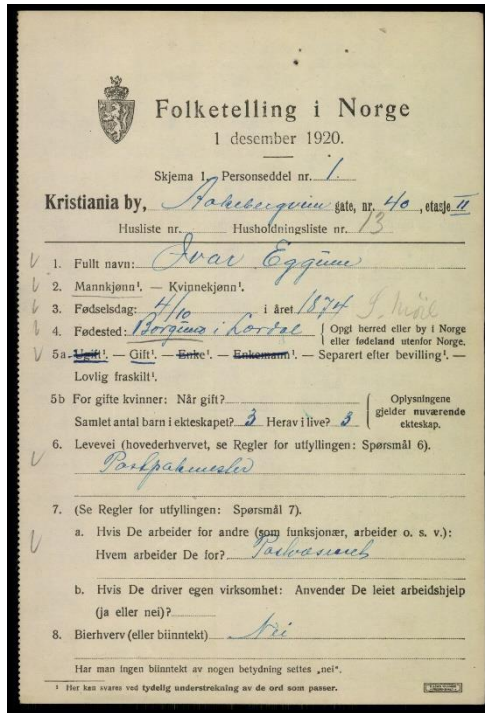 Folketelling i Norge
1 desember 1920.
Skjema 1. Personseddel nr. 1.
Kristiania by, Aakebergveien gate, nr. 40, etasje II
Husliste nr. Husholdningsliste nr. 13
1. Fullt navn: Ivar Eggum
2. Mannkjønn¹. — Kvinnekjønn¹.
3. Fødselsdag: 4/10 i året 1874
4. Fødested: Borgund i Lærdal { Opgi herred eller by i Norge eller fødeland utenfor Norge.
5a Ugift¹. — Gift¹. — Enke¹. — Enkemann¹. — Separert efter bevilling¹. —
Lovlig fraskilt¹.
5b For gifte kvinner: Når gift?
Samlet antal barn i ekteskapet? 3 Herav i live? 3 { Oplysningene gjelder nuværende ekteskap.
6. Levevei (hovederhvervet, se Regler for utfyllingen: Spørsmål 6).
Postpakmester
7. (Se Regler for utfyllingen: Spørsmål 7).
a. Hvis De arbeider for andre (som funksjonær, arbeider o. s. v.):
Hvem arbeider De for? Postvæsenet
b. Hvis De driver egen virksomhet: Anvender De leiet arbeidshjelp
(ja eller nei)?
8. Bierhverv (eller biinntekt) Nei
Har man ingen biinntekt av nogen betydning settes „nei".
¹ Her kan svares ved tydelig understrekning av de ord som passer.